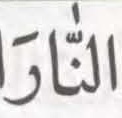 النَّارَ